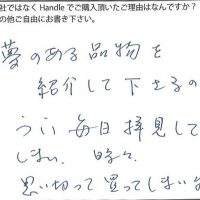 社ではなく Handle でご購入頂いたご理由はなんですか?
の他ご自由にお書き下さい。
夢のある品物を
紹介して下さるの
うい毎日拝見して
しまい、時々、
思い切って買ってしまい